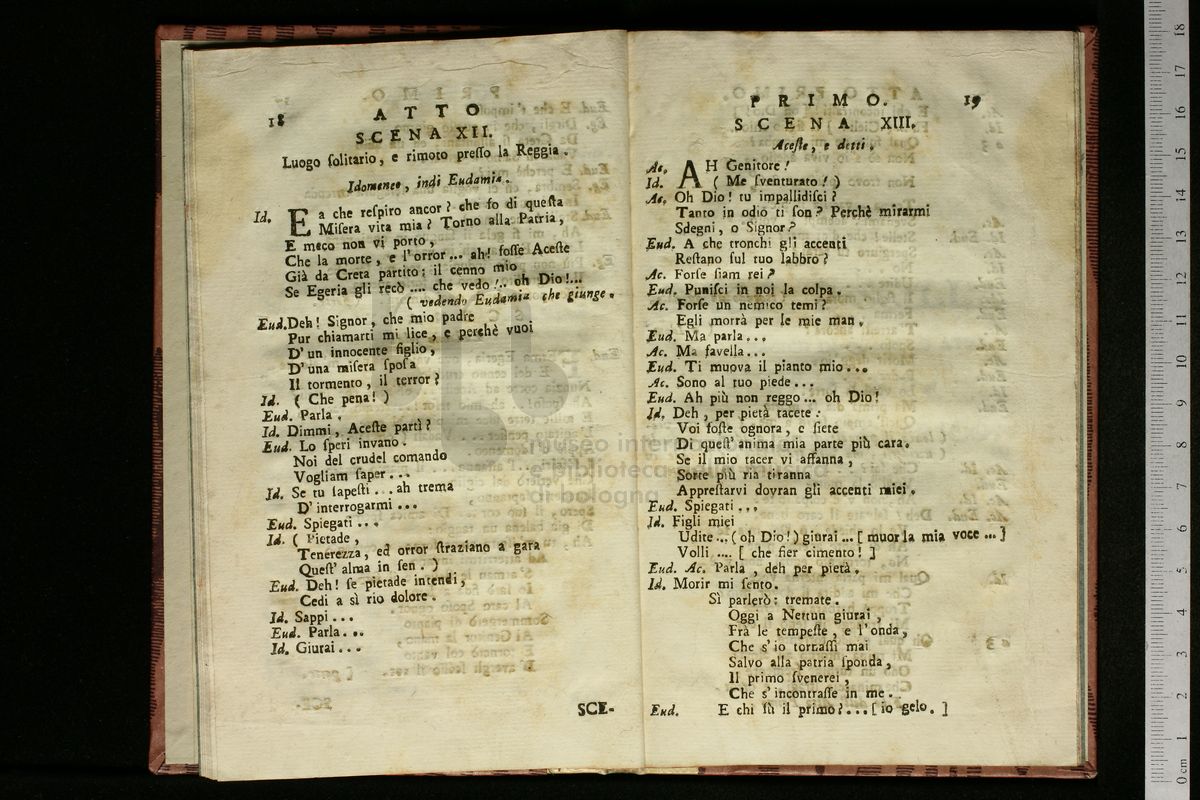 18
ATTO
SCENA XII.
Luogo ſolitario, e rimoto preſſo la Reggia.
Idomeneo, indi Eudamia.
Id. E a che reſpiro ancor? che fo di queſta
Miſera vita mia? Torno alla Patria,
E meco non vi porto,
Che la morte, e l'orror... ah! foſſe Aceſte
Già da Creta partito: il cenno mio
Se Egeria gli recò .... che vedo!.. oh Dio!...
( vedendo Eudamia che giunge.
Eud. Deh! Signor, che mio padre
Pur chiamarti mi lice, e perchè vuoi
D'un innocente figlio,
D'una miſera ſpoſa
Il tormento, il terror?
Id. ( Che pena! )
Eud. Parla.
Id. Dimmi, Aceſte partì?
Eud. Lo ſperi invano.
Noi del crudel comando
Vogliam ſaper...
Id. Se tu ſapeſti ... ah trema
D'interrogarmi ...
Eud. Spiegati ...
Id. ( Pietade,
Tenerezza, ed orror ſtraziano a gara
Queſt'alma in ſen. )
Eud. Deh! ſe pietade intendi,
Cedi a sì rio dolore.
Id. Sappi...
Eud. Parla...
Id. Giurai...
SCE-
PRIMO. 19
SCENA XIII.
Aceſte, e detti.
Ac. AH Genitore!
Id. ( Me ſventurato! )
Ac. Oh Dio! tu impallidiſci?
Tanto in odio ti ſon? Perchè mirarmi
Sdegni, o Signor?
Eud. A che tronchi gli accenti
Reſtano ſul tuo labbro?
Ac. Forſe ſiam rei?
Eud. Puniſci in noi la colpa.
Ac. Forſe un nemico temi?
Egli morrà per le mie man.
Eud. Ma parla...
Ac. Ma favella...
Eud. Ti muova il pianto mio...
Ac. Sono al tuo piede...
Eud. Ah più non reggo... oh Dio!
Id. Deh, per pietà tacete:
Voi foſte ognora, e ſiete
Di queſt'anima mia parte più cara.
Se il mio tacer vi affanna,
Sorte più ria tiranna
Appreſtarvi dovran gli accenti miei.
Eud. Spiegati...
Id. Figli miei
Udite... (oh Dio!) giurai... [ muor la mia voce ... ]
Volli .... [ che fier cimento! ]
Eud. Ac. Parla, deh per pietà.
Id. Morir mi ſento.
Sì parlerò: tremate.
Oggi a Nettun giurai,
Frà le tempeſte, e l'onda,
Che s'io tornaſſi mai
Salvo alla patria ſponda,
Il primo ſvenerei,
Che s'incontraſſe in me.
Eud. E chi fù il primo?...[ io gelo. ]
museo
e biblioteca
di bologna
0 cm 1 2 3 4 5 6 7 8 9 10 11 12 13 14 15 16 17 18